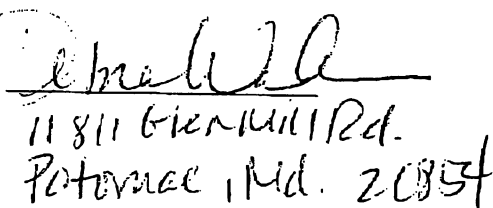 Debra
11811 Glen Mill Rd.
Potomac, Md. 20854